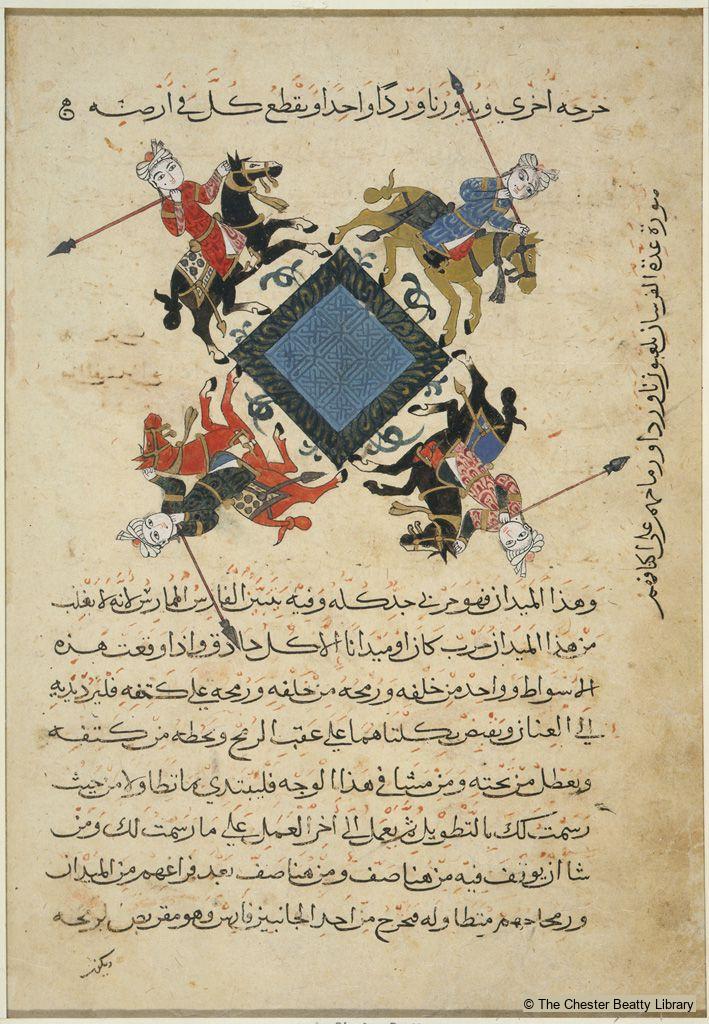 خرجه اخري ويدورنا وردًا واحدا ويقطع كل في ارضه
صورة عدة الفرسان يلعبون ناوردا ورماحهم على اكتافهم
وهذا الميدان فهو حربي جد كله وفيه يتبين الفارس الممارس لانه لا يغلب
من هذا الميدان حرب كان او ميدانا الا كل حاذق واذا وقعت هذه
الاسواط وواحد من خلفه ورمحه من خلفه ورمحه علي كتفه فليرد يديه
الي العنان ويقبض بكلتاهما علي عقب الرمح ويحطه من كتفه
ويعطل من تحته ومن مشا في هذا الوجه فليبتدي ما تطاولا من حيث
رسمت لك بالتطويل ثم يعمل الي آخر العمل علي ما رسمت لك ومن
شا ان يوقف فيه من هنا صف ومن هنا صف بعد فراغهم من الميدان
ورماحهم متطاوله فيخرج من احد الجانبين فارس وهو مقربص برمحه
ويكون
© The Chester Beatty Library